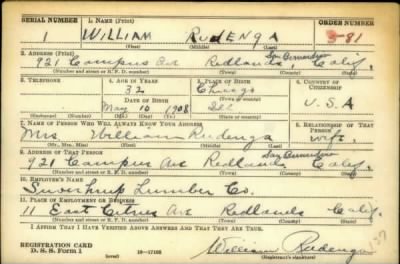 SERIAL NUMBER 1. NAME (Print) ORDER NUMBER
1 WILLIAM RUDENGA 581
(First) (Middle) (Last)
2. ADDRESS (Print)
921 Campus Ave Redlands, San Bernardino Calif.
(Number and street or R. F. D. number) (Town) (County) (State)
3. TELEPHONE 4. AGE IN YEARS 5. PLACE OF BIRTH 6. COUNTRY OF CITIZENSHIP
32 Chicago
DATE OF BIRTH (Town or county)
May 10 1908 Ill U.S.A
(Exchange) (Number) (Mo.) (Day) (Yr.) (State or country)
7. NAME OF PERSON WHO WILL ALWAYS KNOW YOUR ADDRESS 8. RELATIONSHIP OF THAT PERSON
Mrs William Rudenga wife
(Mr., Mrs., Miss) (First) (Middle) (Last)
9. ADDRESS OF THAT PERSON
921 Campus Ave Redlands San Bernardino Calif.
(Number and street or R. F. D. number) (Town) (County) (State)
10. EMPLOYER'S NAME
Lumber Co.
11. PLACE OF EMPLOYMENT OR BUSINESS
11 East Citrus Ave Redlands Calif.
(Number and street or R. F. D. number) (Town) (County) (State)
I AFFIRM THAT I HAVE VERIFIED ABOVE ANSWERS AND THAT THEY ARE TRUE.
REGISTRATION CARD
D. S. S. Form 1 16-17105 William Rudenga
(over) (Registrant's signature)